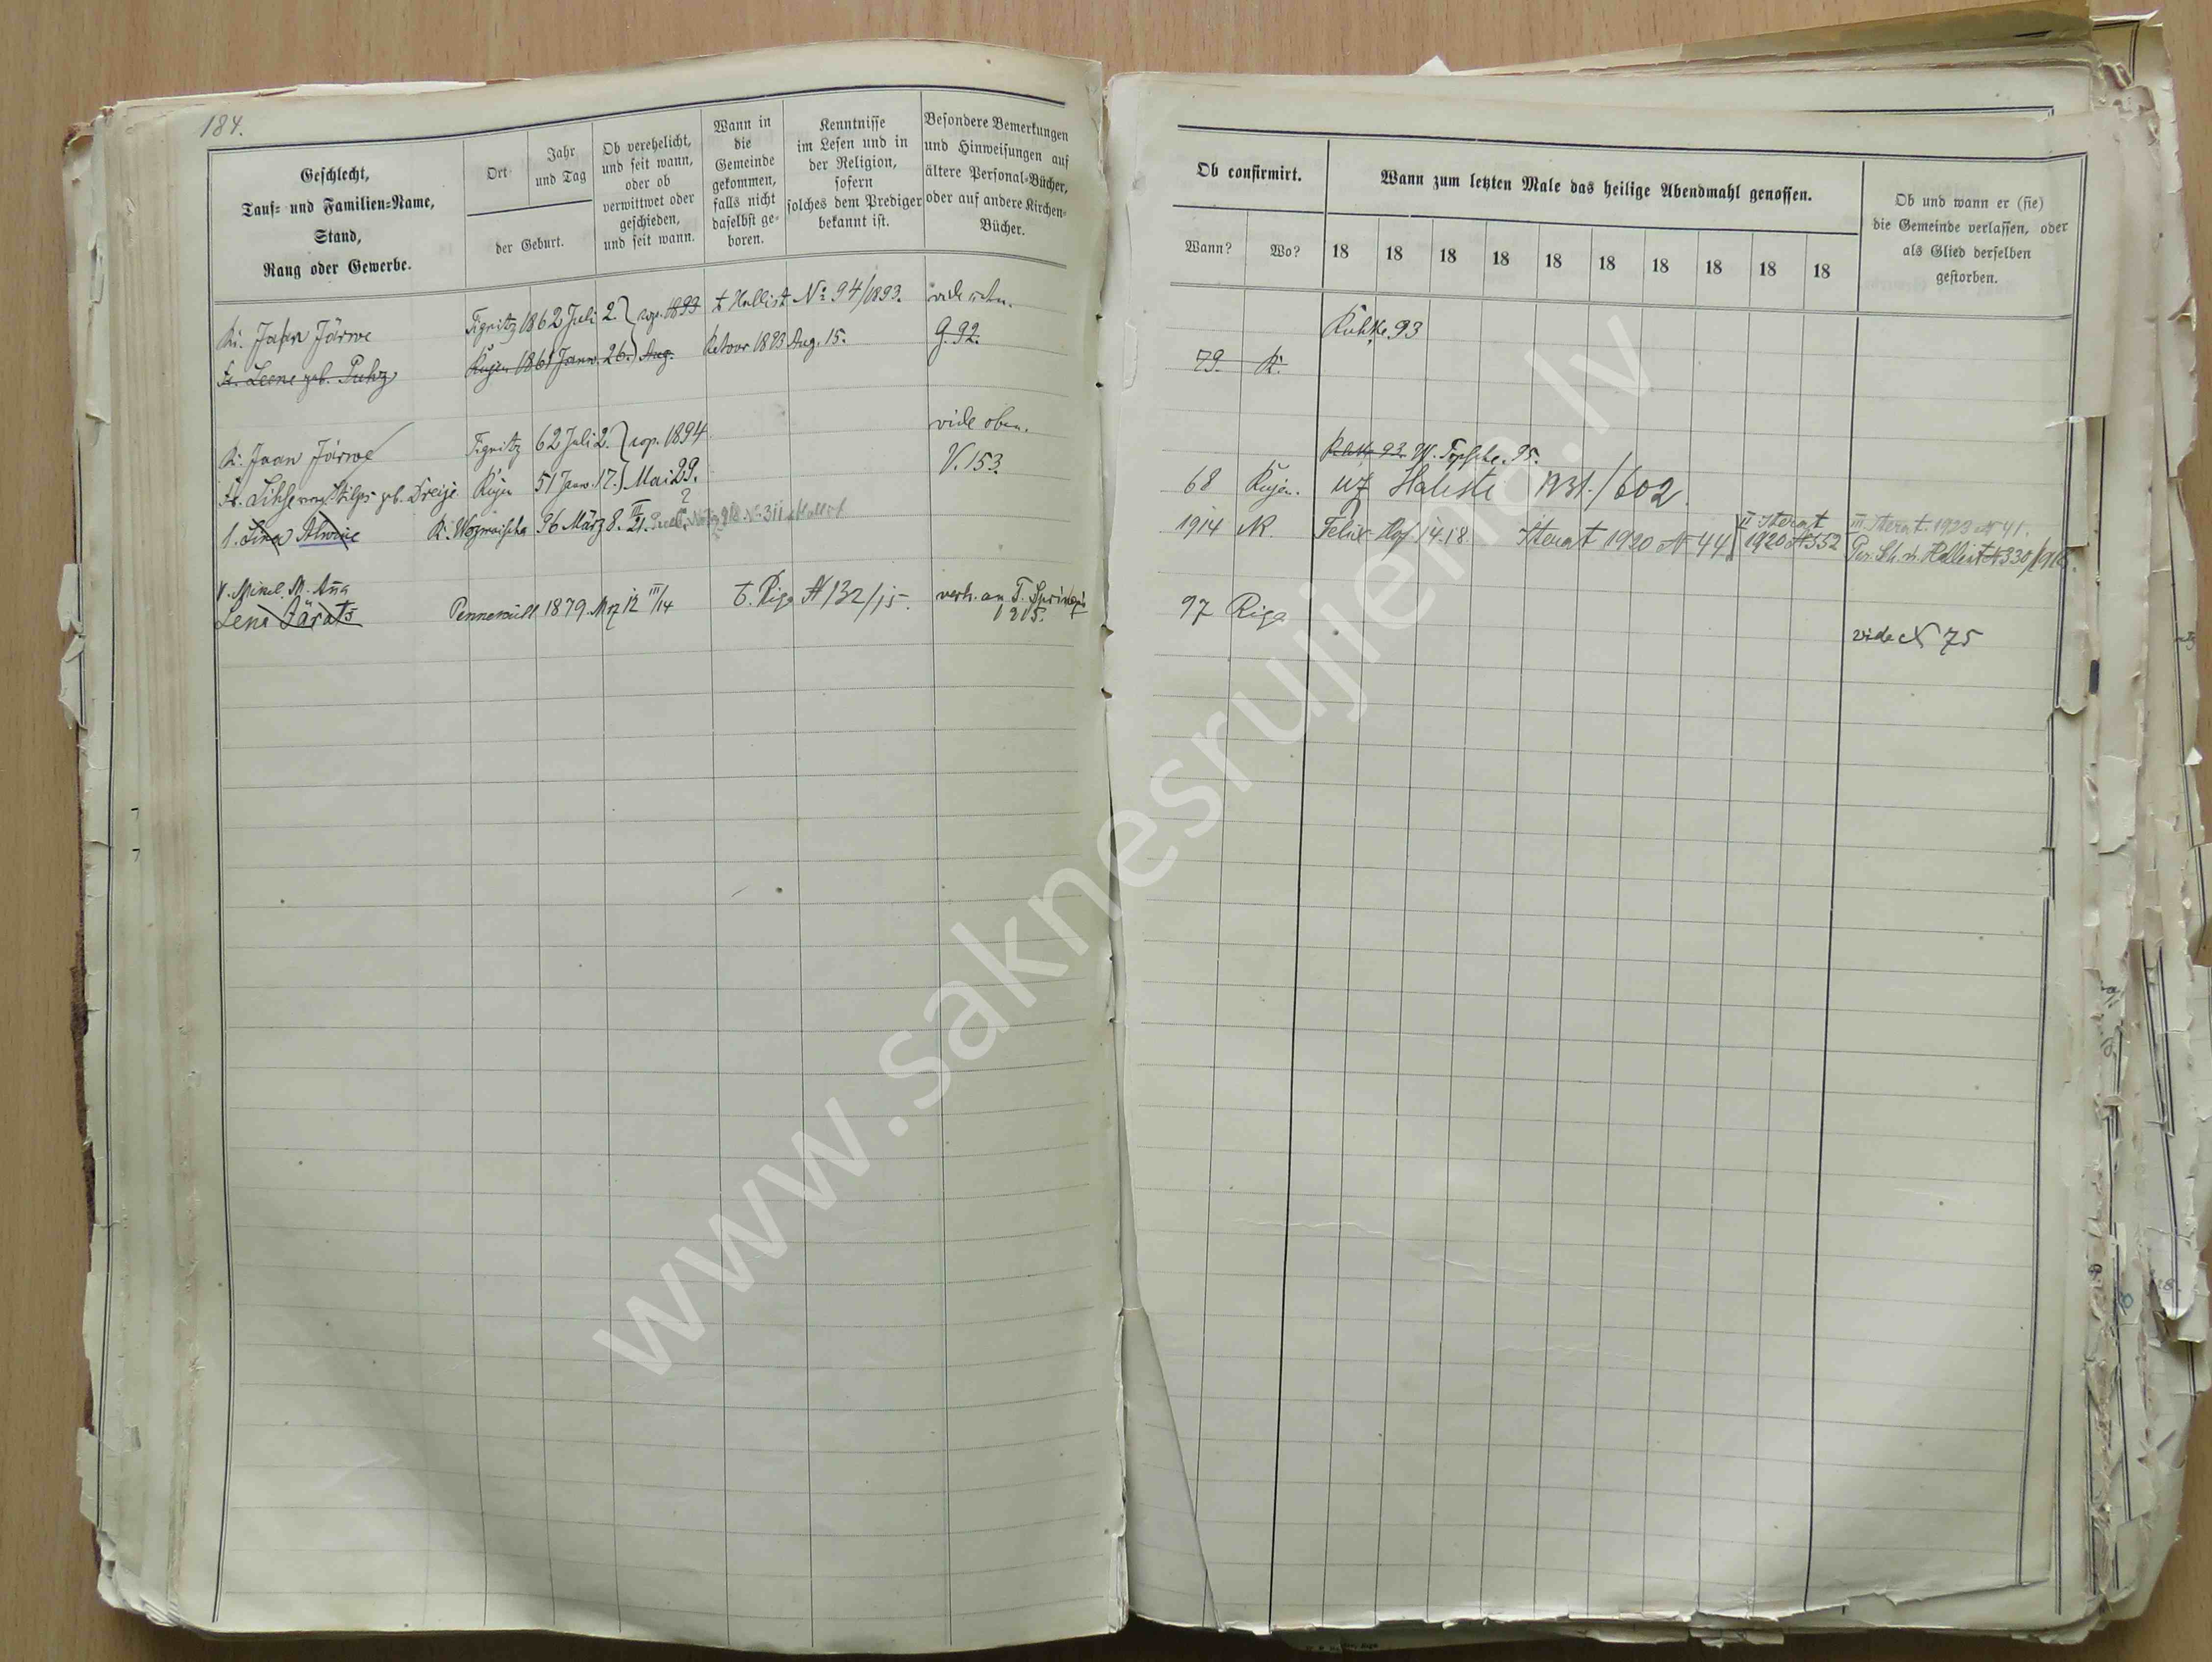 184.
Geschlecht,
Tauf- und Familien-Name,
Stand,
Rang oder Gewerbe.
Ort
Jahr
und Tag
der Geburt.
Ob verehelicht,
und seit wann,
oder ob
verwittwet oder
geschieden,
und seit wann.
Wann in
die
Gemeinde
gekommen,
falls nicht
daselbst ge-
boren.
Kenntnisse
im Lesen und in
der Religion,
sofern
solches dem Prediger
bekannt ist.
Besondere Bemerkungen
und Hinweisungen auf
ältere Personal-Bücher,
oder auf andere Kirchen-
Bücher.
Ob confirmirt.
Wann?
Wo?
Wann zum letzten Male das heilige Abendmahl genossen.
18 18 18 18 18 18 18 18 18 18
Ob und wann er (sie)
die Gemeinde verlassen, oder
als Glied derselben
gestorben.
K. Jahn Järwe Tignitz 1862 Juli 2. cop. 1893 t Hallist No 94/1893. vide unten.
Leene geb. Puhz Rujen 1861 Janr. 26. Aug. Retour 1893 Aug. 15. G. 92. 79. K.
K. Jaan Järwe Tignitz 62 Juli 2. cop. 1894 vide oben.
Lihse geb. Dreije Rujen 51 Janr. 17. Mai 29. V. 153. 68 Rujen. uz Halisti 1931./602.
1. Lina Alwine 96 März 8. 1914 R. 14.18 1920 N 44 II 1920 N 552 III 1923 N 41.
M. Anna
Lena Järats 1879. t. Riga N 132/15. verh. an 1215. 97 Riga
vide N 75
www.saknesrujiena.lv